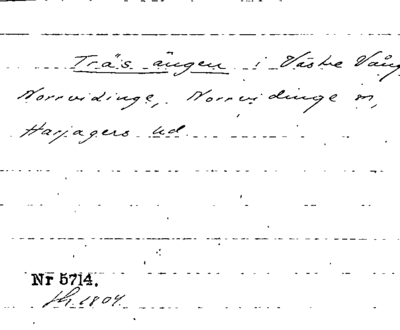 Träs ängen i Västre Vång
Norrvidinge, Norrvidinge sn,
Harjagers hd
Nr 5714.
1804.